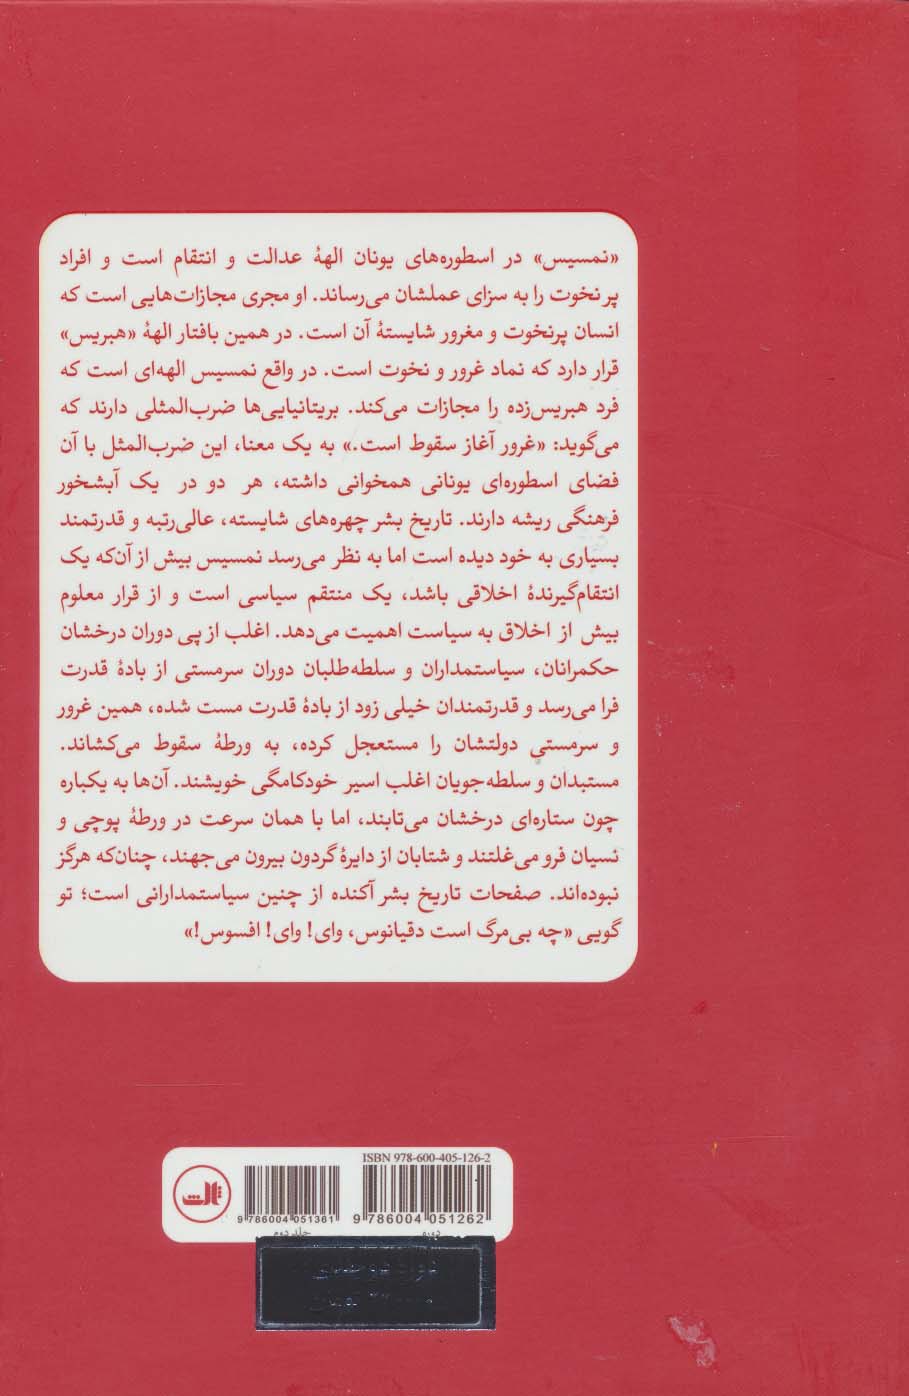 «نمسیس» در اسطوره‌های یونان الههٔ عدالت و انتقام است و افراد
پر نخوت را به سزای عملشان می‌رساند. او مجری مجازات‌هایی است که
انسان پرنخوت و مغرور شایستهٔ آن است. در همین بافتار الههٔ «هبریس»
قرار دارد که نماد غرور و نخوت است. در واقع نمسیس الهه‌ای است که
فرد هبریس‌زده را مجازات می‌کند. بریتانیایی‌ها ضرب‌المثلی دارند که
می‌گوید: «غرور آغاز سقوط است.» به یک معنا، این ضرب‌المثل با آن
فضای اسطوره‌ای یونانی همخوانی داشته، هر دو در یک آبشخور
فرهنگی ریشه دارند. تاریخ بشر چهره‌های شایسته، عالی‌رتبه و قدرتمند
بسیاری به خود دیده است اما به نظر می‌رسد نمسیس بیش از آن‌که یک
انتقام‌گیرندهٔ اخلاقی باشد، یک منتقم سیاسی است و از قرار معلوم
بیش از اخلاق به سیاست اهمیت می‌دهد. اغلب از پی دوران درخشان
حکمرانان، سیاستمداران و سلطه‌طلبان دوران سرمستی از بادهٔ قدرت
فرا می‌رسد و قدرتمندان خیلی زود از بادهٔ قدرت مست شده، همین غرور
و سرمستی دولتشان را مستعجل کرده، به ورطهٔ سقوط می‌کشاند.
مستبدان و سلطه‌جویان اغلب اسیر خودکامگی خویشند. آن‌ها به یکباره
چون ستاره‌ای درخشان می‌تابند، اما با همان سرعت در ورطهٔ پوچی و
نسیان فرو می‌غلتند و شتابان از دایرهٔ گردون بیرون می‌جهند، چنان‌که هرگز
نبوده‌اند. صفحات تاریخ بشر آکنده از چنین سیاستمدارانی است؛ تو
گویی «چه بی‌مرگ است دقیانوس، وای! وای! افسوس!»
ISBN 978-600-405-126-2
9 786004 051361
9 786004 051262
جلد دوم
دوره
ثالث